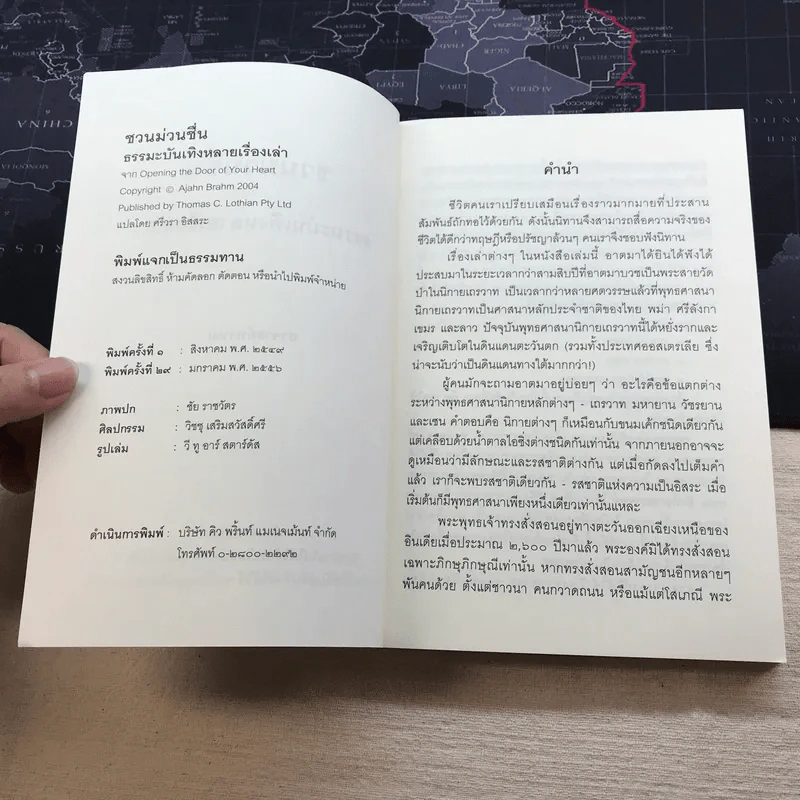 ชวนม่วนชื่น
ธรรมะบันเทิงหลายเรื่องเล่า
จาก Opening the Door of Your Heart
Copyright © Ajahn Brahm 2004
Published by Thomas C. Lothian Pty Ltd
แปลโดย ศรีวรา อิสสระ
พิมพ์แจกเป็นธรรมทาน
สงวนลิขสิทธิ์ ห้ามคัดลอก ตัดตอน หรือนำไปพิมพ์จำหน่าย
พิมพ์ครั้งที่ ๑ : สิงหาคม พ.ศ. ๒๕๔๙
พิมพ์ครั้งที่ ๒๙ : มกราคม พ.ศ. ๒๕๕๖
ภาพปก : ชัย ราชวัตร
ศิลปกรรม : วิชชุ เสริมสวัสดิ์ศรี
รูปเล่ม : วี ทู อาร์ สตาร์ดัส
ดำเนินการพิมพ์ : บริษัท คิว พริ้นท์ แมเนจเม้นท์ จำกัด
โทรศัพท์ ๐-๒๘๐๐-๒๒๙๒
คำนำ
ชีวิตคนเราเปรียบเสมือนเรื่องราวมากมายที่ประสาน
สัมพันธ์ถักทอไว้ด้วยกัน ดังนั้นนิทานจึงสามารถสื่อความจริงของ
ชีวิตได้ดีกว่าทฤษฎีหรือปรัชญาล้วนๆ คนเราจึงชอบฟังนิทาน
เรื่องเล่าต่างๆ ในหนังสือเล่มนี้ อาตมาได้ยินได้ฟังได้
ประสบมาในระยะเวลากว่าสามสิบปีที่อาตมาบวชเป็นพระสายวัด
ป่าในนิกายเถรวาท เป็นเวลากว่าหลายศตวรรษแล้วที่พุทธศาสนา
นิกายเถรวาทเป็นศาสนาหลักประจำชาติของไทย พม่า ศรีลังกา
เขมร และลาว ปัจจุบันพุทธศาสนานิกายเถรวาทนี้ได้หยั่งรากและ
เจริญเติบโตในดินแดนตะวันตก (รวมทั้งประเทศออสเตรเลีย ซึ่ง
น่าจะนับว่าเป็นดินแดนทางใต้มากกว่า!)
ผู้คนมักจะถามอาตมาอยู่บ่อยๆ ว่า อะไรคือข้อแตกต่าง
ระหว่างพุทธศาสนานิกายหลักต่างๆ - เถรวาท มหายาน วัชรยาน
และเซน คำตอบคือ นิกายต่างๆ ก็เหมือนกับขนมเค้กชนิดเดียวกัน
แต่เคลือบด้วยน้ำตาลไอซิ่งต่างชนิดกันเท่านั้น จากภายนอกอาจจะ
ดูเหมือนว่ามีลักษณะและรสชาติต่างกัน แต่เมื่อกัดลงไปเต็มคำ
แล้ว เราก็จะพบรสชาติเดียวกัน - รสชาติแห่งความเป็นอิสระ เมื่อ
เริ่มต้นก็มีพุทธศาสนาเพียงหนึ่งเดียวเท่านั้นแหละ
พระพุทธเจ้าทรงสั่งสอนอยู่ทางตะวันออกเฉียงเหนือของ
อินเดียเมื่อประมาณ ๒,๖๐๐ ปีมาแล้ว พระองค์มิได้ทรงสั่งสอน
เฉพาะภิกษุภิกษุณีเท่านั้น หากทรงสั่งสอนสามัญชนอีกหลายๆ
พันคนด้วย ตั้งแต่ชาวนา คนกวาดถนน หรือแม้แต่โสเภณี พระ
CHINA
LIBYA
ALGERIA
EGYPT
CHAD
NIGER